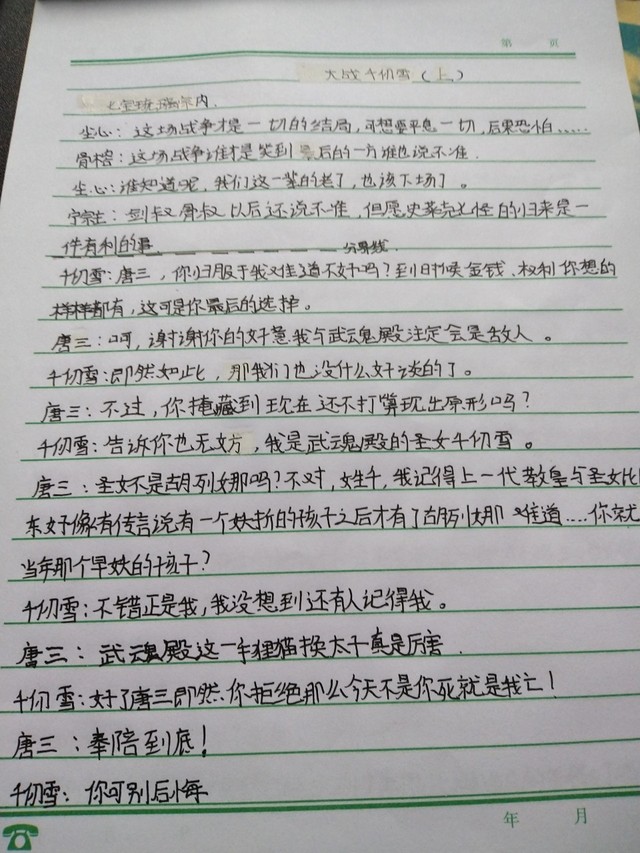 第 页
大战千仞雪（上）
七宝琉璃宗内.
尘心：这场战争才是一切的结局，可想要平息一切，后果恐怕……
骨榕：这场战争谁才是笑到最后的一方谁也说不准.
尘心：谁知道呢，我们这一辈的老了，也该下场了。
宁宗主：剑叔骨叔以后还说不准，但愿史莱克七怪的归来是一
件有利的事 分界线
千仞雪：唐三，你归服于我难道不好吗？到时候金钱、权利你想的
样样都有，这可是你最后的选择。
唐三：呵，谢谢你的好意我与武魂殿注定会是敌人。
千仞雪：即然如此，那我们也没什么好谈的了。
唐三：不过，你掩藏到现在还不打算现出原形吗？
千仞雪：告诉你也无妨，我是武魂殿的圣女千仞雪。
唐三：圣女不是胡列娜吗？不对，姓千，我记得上一代教皇与圣女比
东好像有传言说有一个妖折的孩子之后才有了胡列娜 难道……你就
当年那个早妖的孩子？
千仞雪：不错正是我，我没想到还有人记得我。
唐三：武魂殿这一手狸猫换太子真是厉害.
千仞雪：好了唐三即然你拒绝那么今天不是你死就是我亡！
唐三：奉陪到底！
千仞雪：你可别后悔
年 月